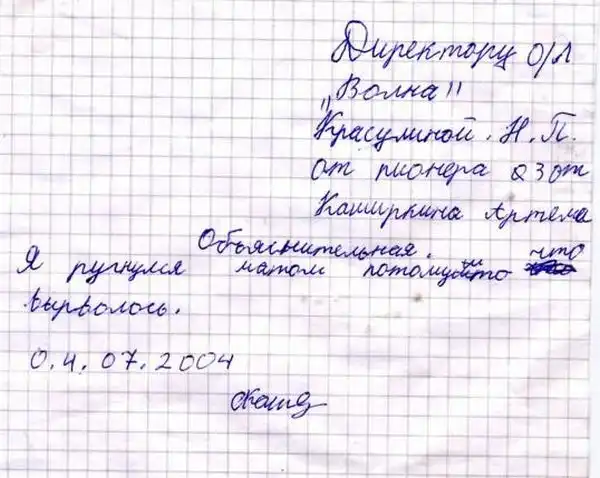 Директору О/Л
"Волна"
Красулиной. Н. П.
От пионера 23 от
Каширкина Артёма
Объяснительная.
Я ругнулся матом потомушто что
вырволось.
0.4.07.2004